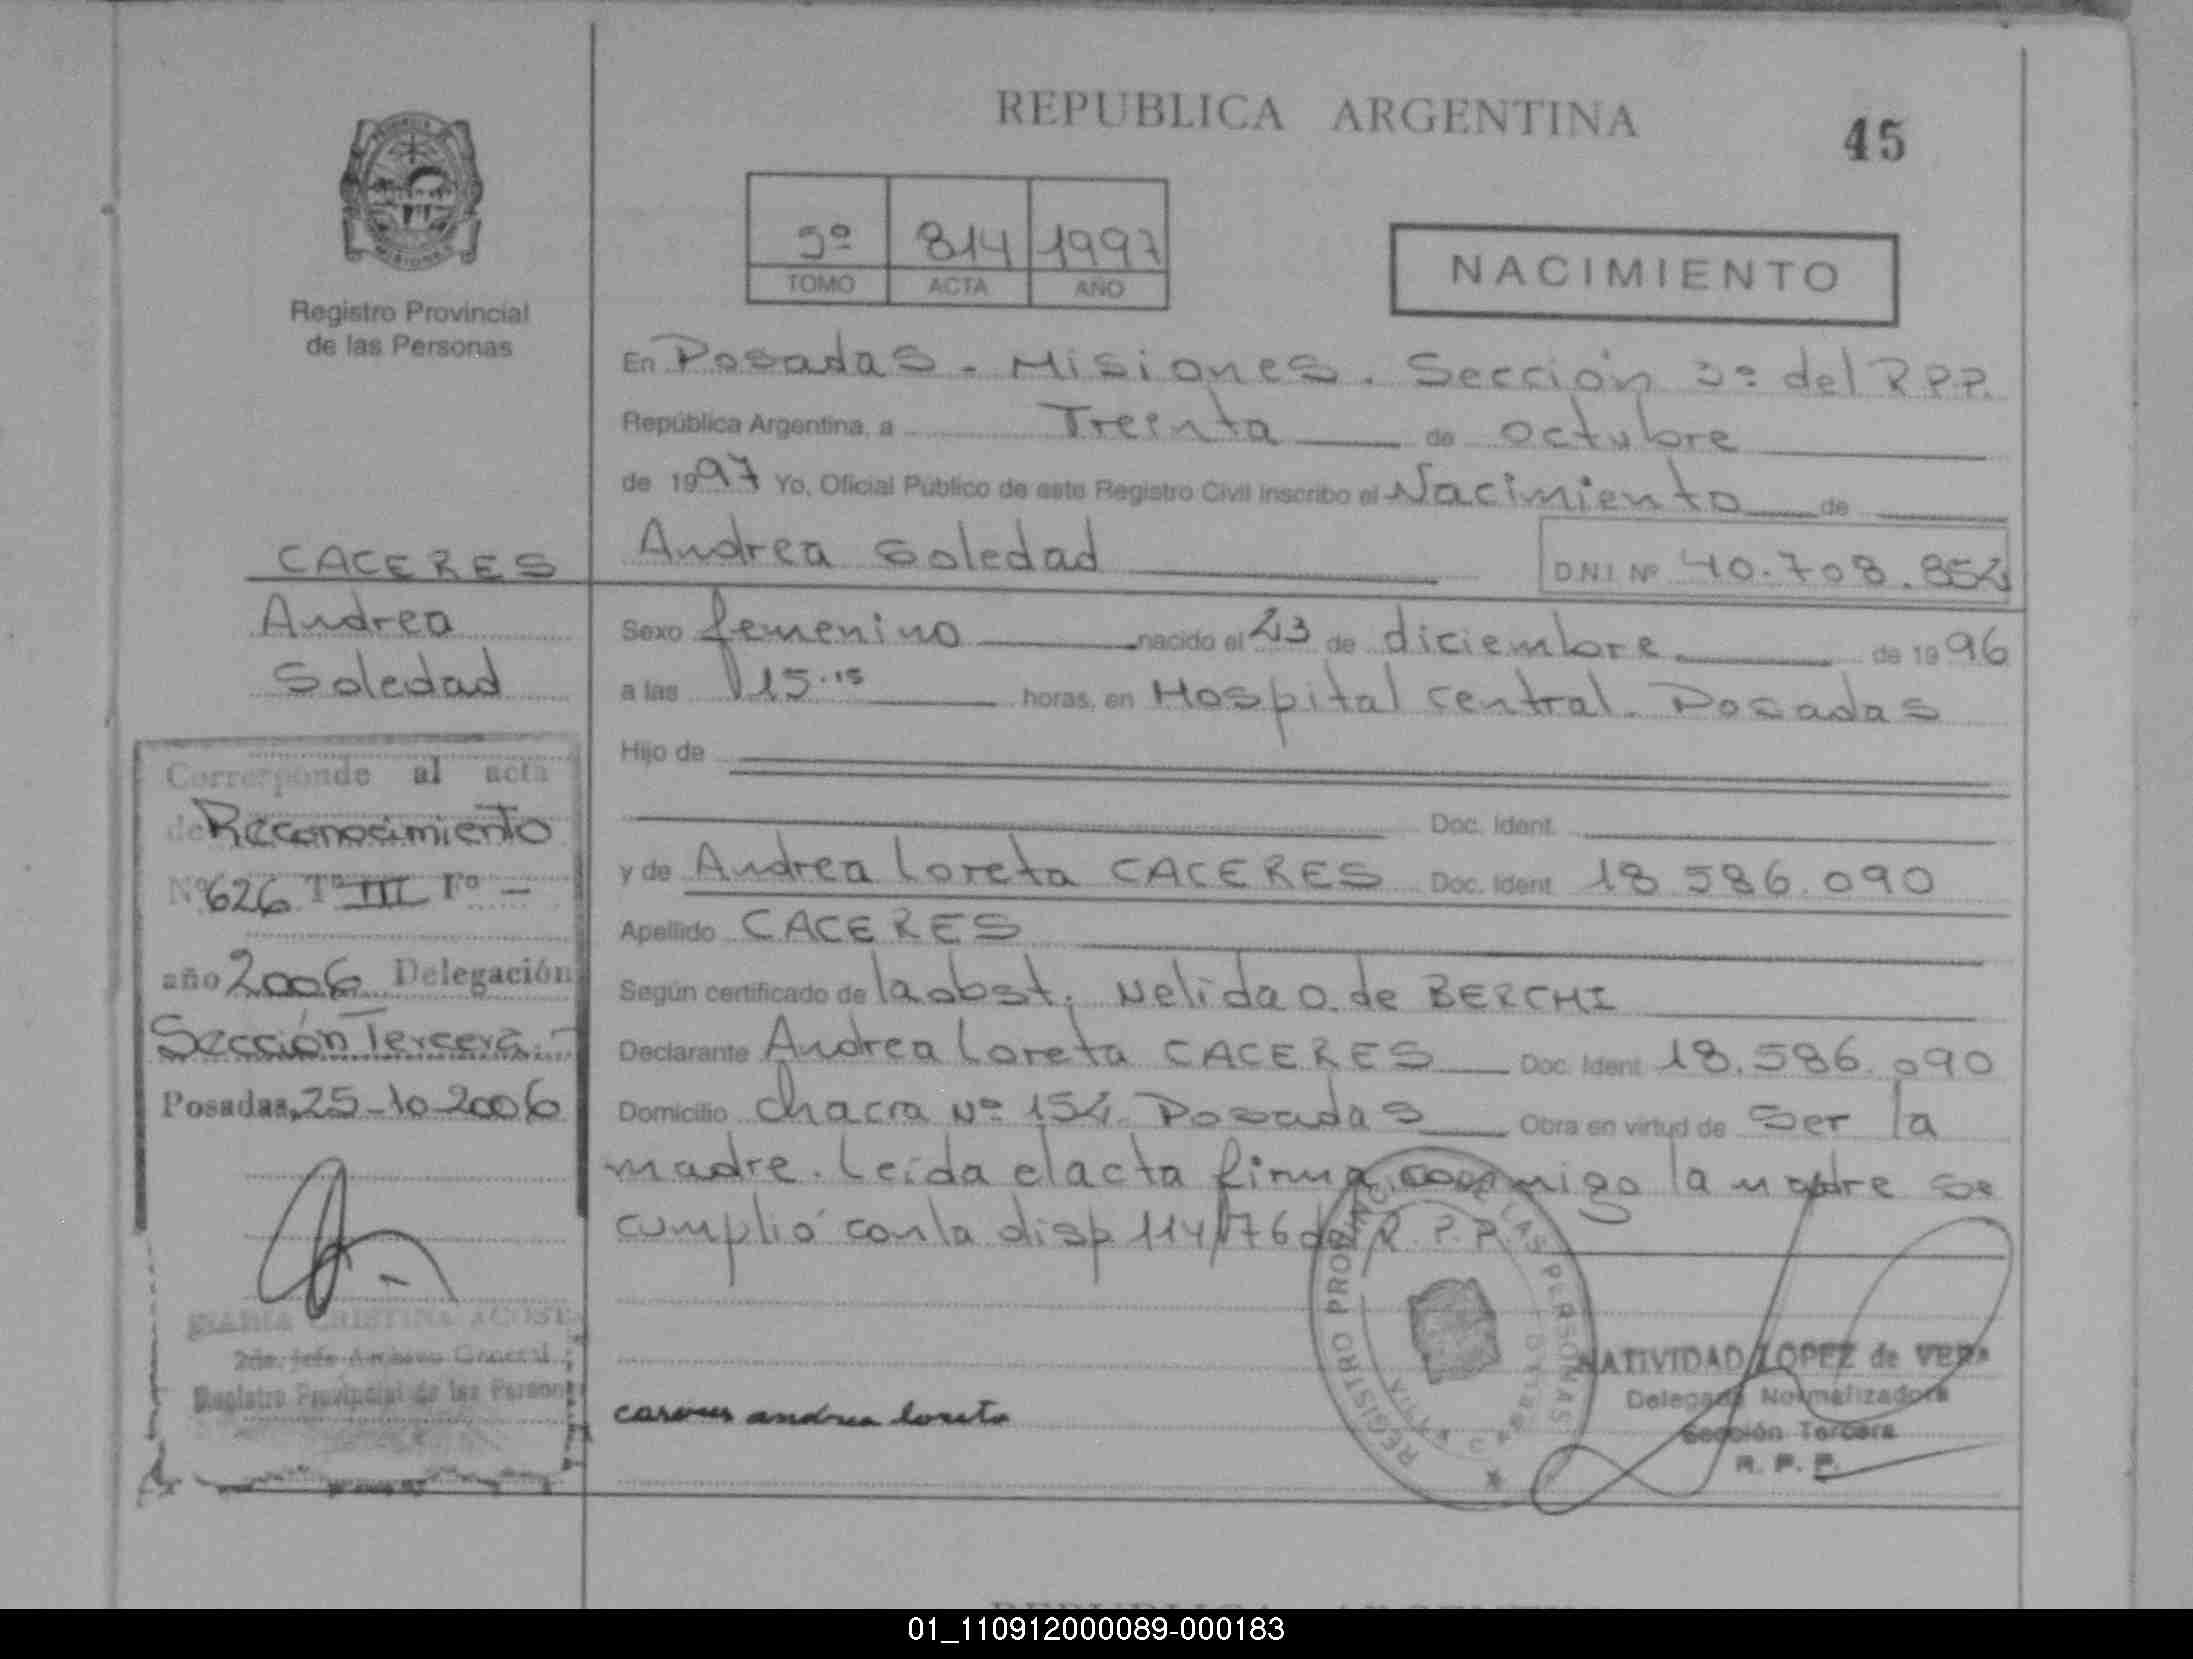 REPUBLICA ARGENTINA
45
Registro Provincial
de las Personas
5º 814 1997
TOMO ACTA AÑO
NACIMIENTO
En Posadas - Misiones. Sección 3ª del R.P.P.
República Argentina, a Treinta de octubre
de 1997 Yo, Oficial Público de este Registro Civil inscribo el Nacimiento de
Andrea Soledad DNI Nº 40.708.854
CACERES
Andrea
Soledad
Sexo femenino nacido el 23 de diciembre de 1996
a las 15.15 horas, en Hospital central. Posadas
Hijo de
Doc. Ident.
y de Andrea Loreta CACERES Doc. Ident. 18.586.090
Apellido CACERES
Según certificado de la obst. Nelida O. de BERCHI
Declarante Andrea Loreta CACERES Doc. Ident. 18.586.090
Domicilio Chacra Nº 154. Posadas Obra en virtud de ser la
madre. Leída el acta firma conmigo la madre se
cumplió con la disp 114/76 del R.P.P.
Corresponde al acta
de Reconocimiento
Nº 626 Tº III Fº -
año 2006 Delegación
Sección Tercera.-
Posadas, 25-10-2006
MARIA CRISTINA
2da. Jefe Archivo General
Registro Provincial de las Person
caseres andrea loreta
REGISTRO LAS PERSONAS
NATIVIDAD LOPEZ de VERA
Delegada Normalizadora
Sección Tercera
R. P. P.
01_110912000089-000183